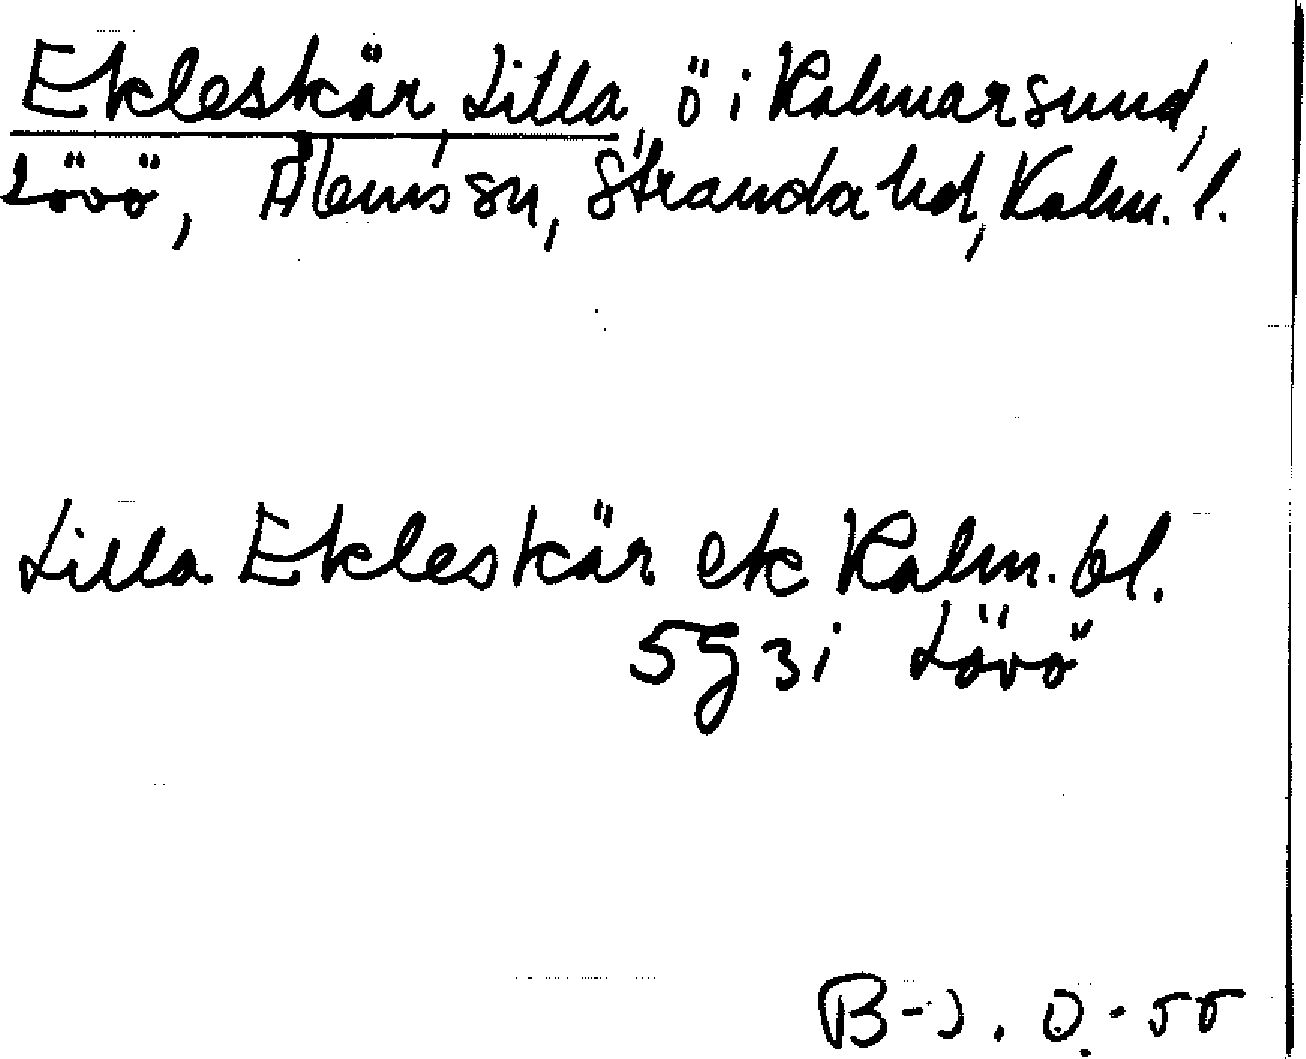 Ekleskär, Lilla, ö i Kalmarsund,
Lövö, Ålems sn, Stranda hd, Kalm. l.
Lilla Ekleskär ek Kalm. bl.
5g 3i Lövö
B-J. O. -55